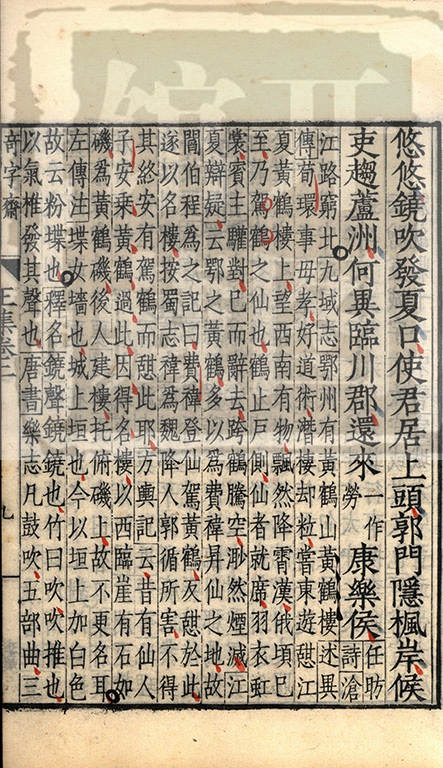 悠悠鐃吹發夏口使君居上頭郭門隱楓岸候
吏趨蘆洲何異臨川郡還來一作勞康樂侯任昉詩滄
江路窮此九域志鄂州有黃鶴山黃鶴樓述異
傳荀環事毋孝好道術潛棲却粒嘗東遊憇江
夏黃鶴樓上望西南有物飄然降霄漢俄頃巳
至乃駕鶴之仙也鶴止戶側仙者就席羽衣虹
裳賓主驩對巳而辭去跨鶴騰空渺然煙滅江
夏辯疑云鄂之黃鶴多以為費禕昇仙之地故
閻伯程為之記曰費禕登仙駕黃鶴友憇於此
遂以名樓按蜀志禕為魏降人郭循所害不得
其終安有駕鶴而憇此耶方輿記云昔有仙人
子安乘黃鶴過此因得名樓以西臨崖有石如
磯為黃鶴磯後人建樓托俯磯上故不更名耳
左傳注堞女墻也城上垣也今以垣上加白色
故云粉堞也釋名鐃聲鐃鐃也竹曰吹吹推也
以氣推發其聲也唐書樂志凡鼓吹五部曲三
奇字齋 王集卷三 九